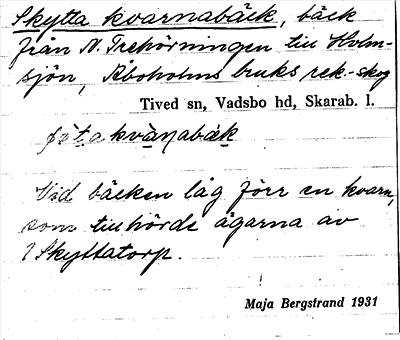 Skytta kvarnabäck, bäck
från N. Trehörningen till Holm-
sjön, Åboholms bruks rek.-skog
Tived sn, Vadsbo hd, Skarab. l.
kvànabäk
Vid bäcken låg förr en kvarn,
som tillhörde ägarna av
Skyttatorp.
Maja Bergstrand 1931